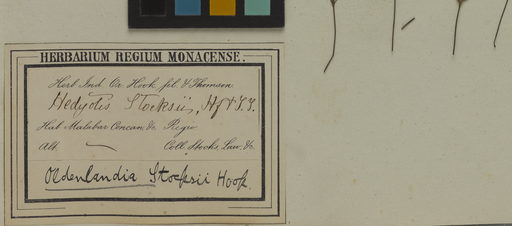 HERBARIUM REGIUM MONACENSE.
Herb. Ind. Or. Hook. fil. & Thomson.
Hedyotis Stocksii, Hf & T.T.
Hab. Malabar Concan, &c. Regio
Alt. — Coll. Stocks, Law, &c.
Oldenlandia Stocksii Hook.